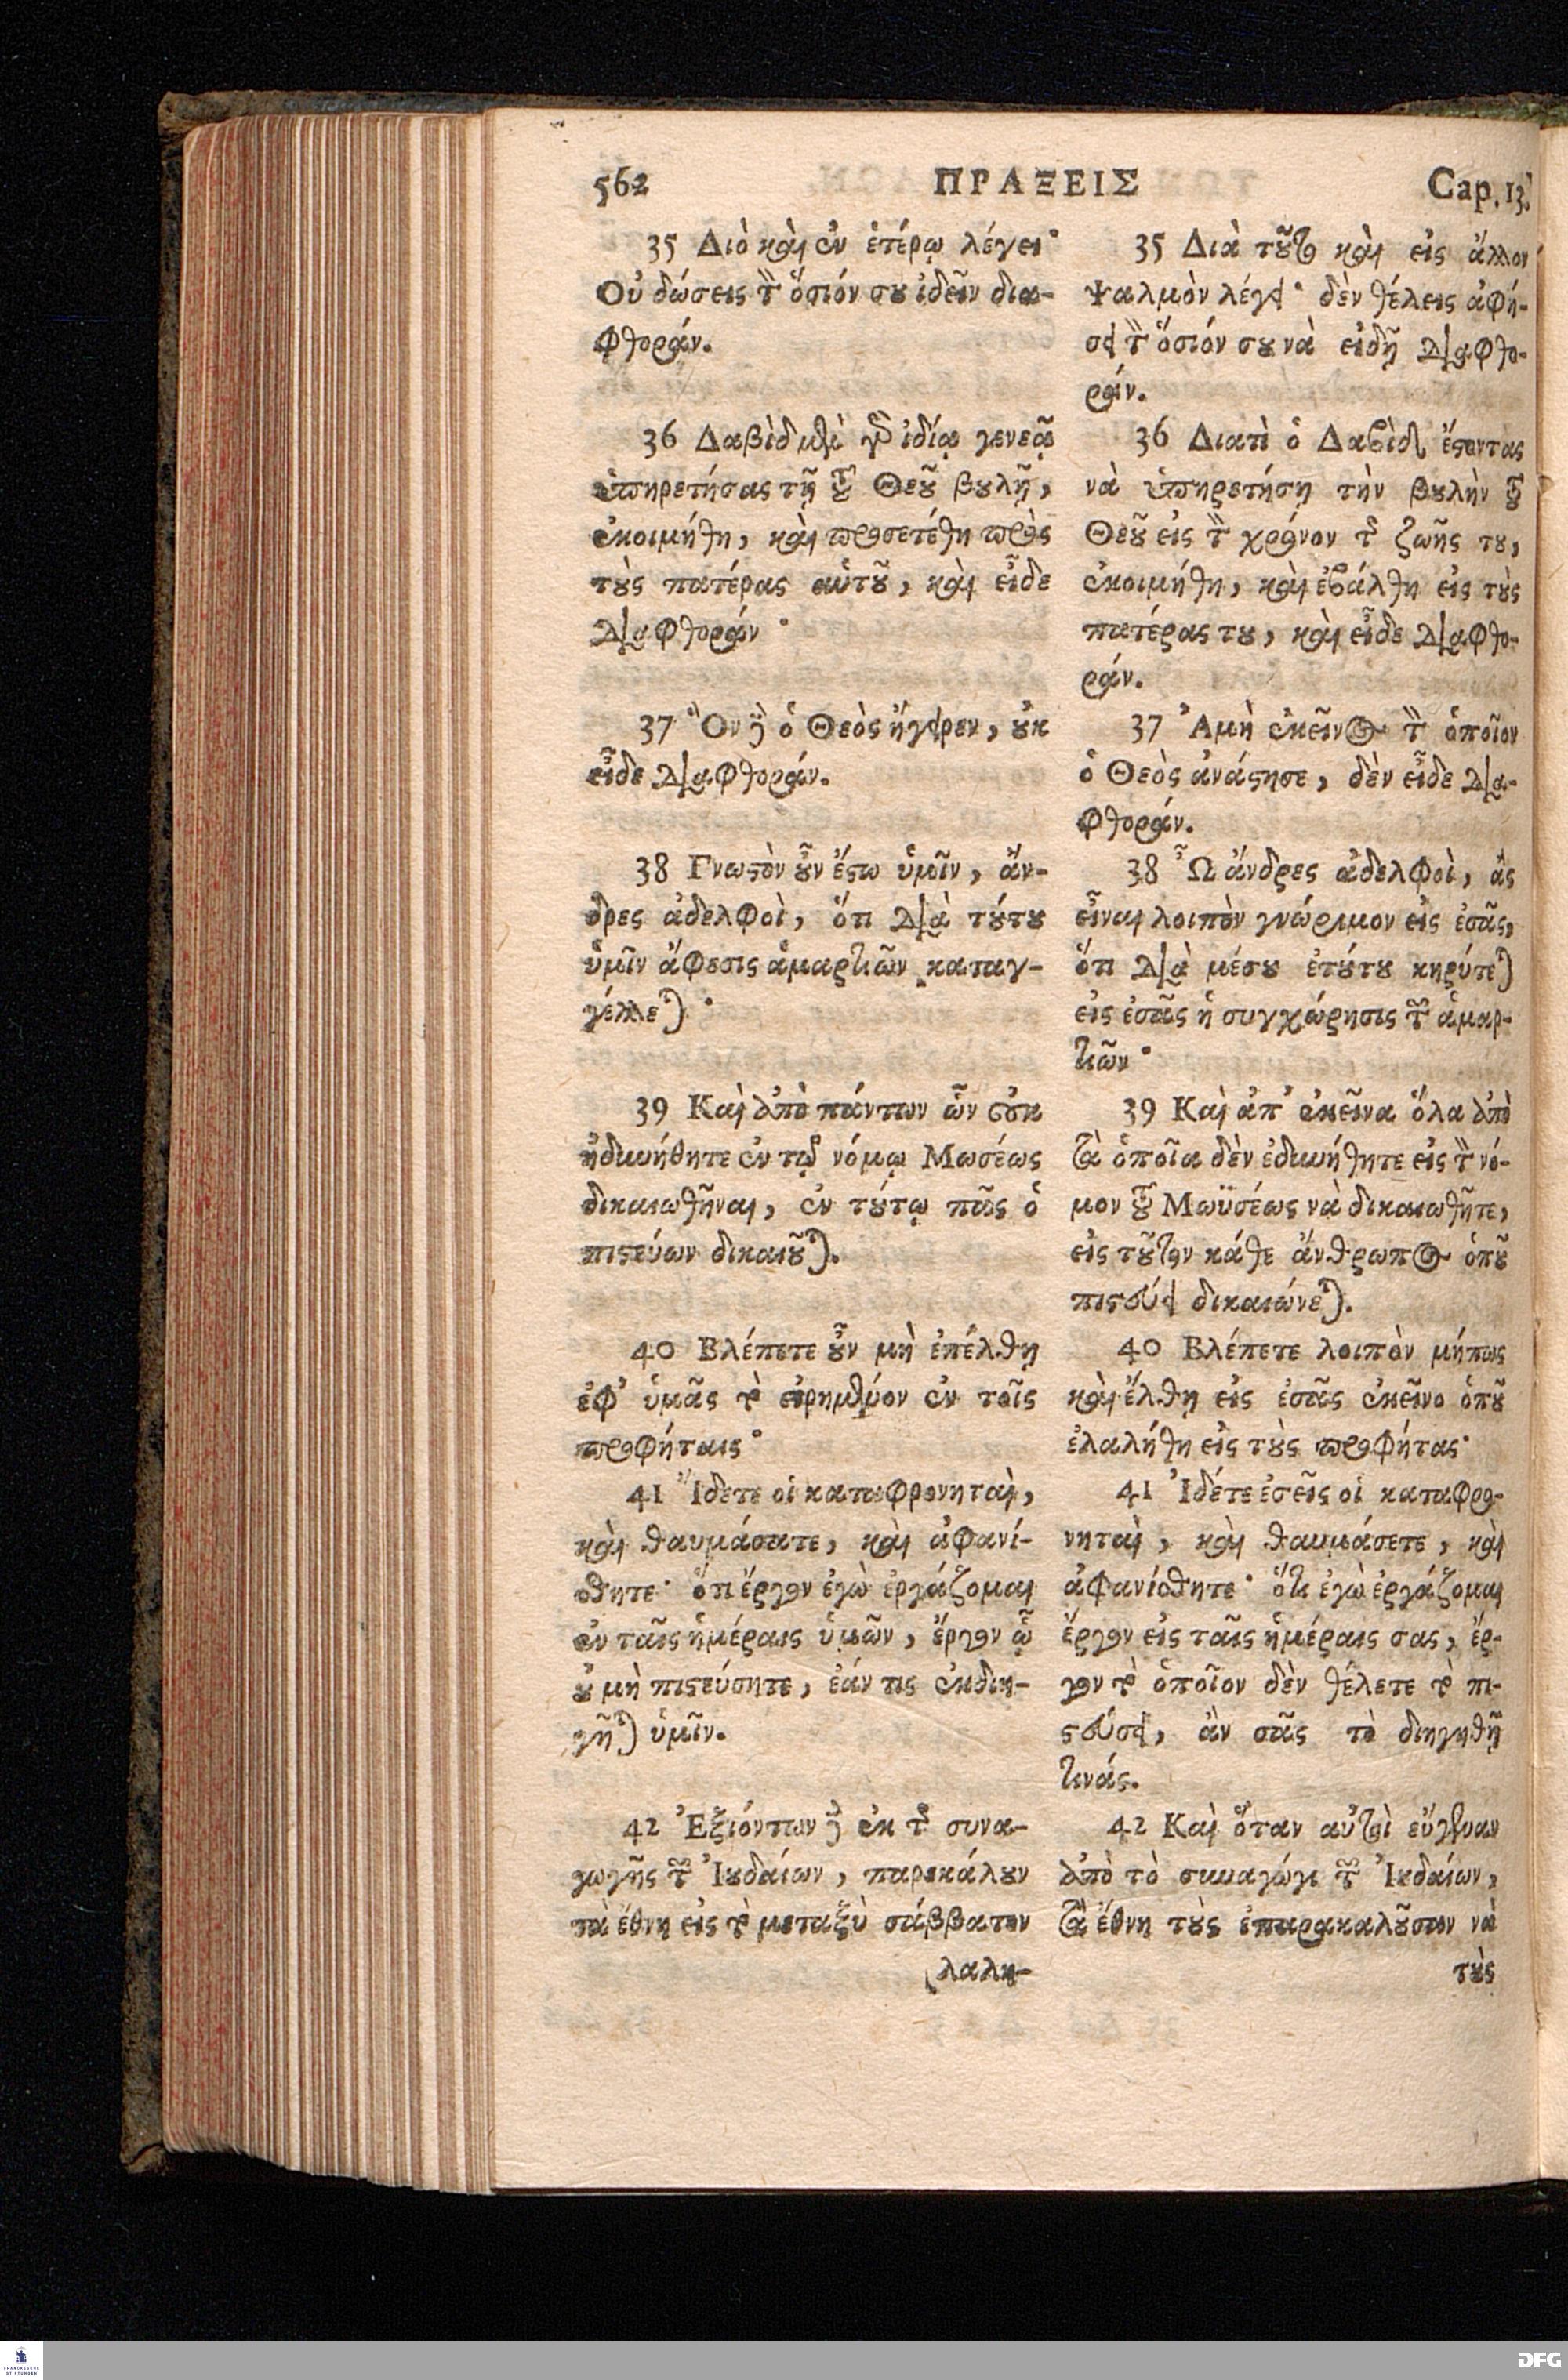 562
ΠΡΑΞΕΙΣ
Cap. 13.
35 Διὸ καὶ ἐν ἑτέρῳ λέγει·
Οὐ δώσεις τὸν ὅσιόν σου ἰδεῖν δια-
φθοράν.
36 Δαβὶδ μὲν γὰρ ἰδίᾳ γενεᾷ
ὑπηρετήσας τῇ τοῦ Θεοῦ βουλῇ,
ἐκοιμήθη, καὶ προσετέθη πρὸς
τοὺς πατέρας αὑτοῦ, καὶ εἶδε
διαφθοράν·
37 Ὃν δὲ ὁ Θεὸς ἤγειρεν, οὐκ
εἶδε διαφθοράν.
38 Γνωστὸν οὖν ἔστω ὑμῖν, ἄν-
δρες ἀδελφοὶ, ὅτι διὰ τούτου
ὑμῖν ἄφεσις ἁμαρτιῶν καταγ-
γέλλεται·
39 Καὶ ἀπὸ πάντων ὧν οὐκ
ἠδυνήθητε ἐν τῷ νόμῳ Μωσέως
δικαιωθῆναι, ἐν τούτῳ πᾶς ὁ
πιστεύων δικαιοῦται.
40 Βλέπετε οὖν μὴ ἐπέλθῃ
ἐφ' ὑμᾶς τὸ εἰρημένον ἐν τοῖς
προφήταις·
41 Ἴδετε οἱ καταφρονηταὶ,
καὶ θαυμάσατε, καὶ ἀφανί-
σθητε· ὅτι ἔργον ἐγὼ ἐργάζομαι
ἐν ταῖς ἡμέραις ὑμῶν, ἔργον ᾧ
οὐ μὴ πιστεύσητε, ἐάν τις ἐκδιη-
γῆται ὑμῖν.
42 Ἐξιόντων δὲ ἐκ τῆς συνα-
γωγῆς τῶν Ἰουδαίων, παρεκάλουν
τὰ ἔθνη εἰς τὸ μεταξὺ σάββατον
λαλη-
35 Διὰ τοῦτο καὶ εἰς ἄλλον
Ψαλμὸν λέγει· δὲν θέλεις ἀφή-
σει τὸν ὅσιόν σου νὰ εἰδῇ διαφθο-
ράν.
36 Διατὶ ὁ Δαβὶδ ἔστοντας
νὰ ὑπηρετήσῃ τὴν βουλὴν τοῦ
Θεοῦ εἰς τὸν χρόνον τῆς ζωῆς του,
ἐκοιμήθη, καὶ ἐβάλθη εἰς τοὺς
πατέρας του, καὶ εἶδε διαφθο-
ράν.
37 Ἀμὴ ἐκεῖνος τὸν ὁποῖον
ὁ Θεὸς ἀνάστησε, δὲν εἶδε δια-
φθοράν.
38 Ὦ ἄνδρες ἀδελφοὶ, ἂς
εἶναι λοιπὸν γνώριμον εἰς ἐσᾶς,
ὅτι διὰ μέσου ἐτούτου κηρύττεται
εἰς ἐσᾶς ἡ συγχώρησις τῶν ἁμαρ-
τιῶν·
39 Καὶ ἀπ' ἐκεῖνα ὅλα ἀπὸ
τὰ ὁποῖα δὲν ἐδυνήθητε εἰς τὸν νό-
μον τοῦ Μωϋσέως νὰ δικαιωθῆτε,
εἰς τοῦτον κάθε ἄνθρωπος ὁποῦ
πιστεύει δικαιώνεται.
40 Βλέπετε λοιπὸν μήπως
καὶ ἔλθῃ εἰς ἐσᾶς ἐκεῖνο ὁποῦ
ἐλαλήθη εἰς τοὺς προφήτας·
41 Ἰδέτε ἐσεῖς οἱ καταφρο-
νηταὶ, καὶ θαυμάσετε, καὶ
ἀφανίσθητε· ὅτι ἐγὼ ἐργάζομαι
ἔργον εἰς ταῖς ἡμέραις σας, ἔρ-
γον τὸ ὁποῖον δὲν θέλετε τὸ πι-
στεύσει, ἂν σᾶς τὸ διηγηθῇ
τινάς.
42 Καὶ ὅταν αὐτοὶ εὔγεναν
ἀπὸ τὸ συναγώγι τῶν Ἰουδαίων,
τὰ ἔθνη τοὺς ἐπαρακαλοῦσαν νὰ
τοὺς
FRANCKESCHE
STIFTUNGEN
DFG